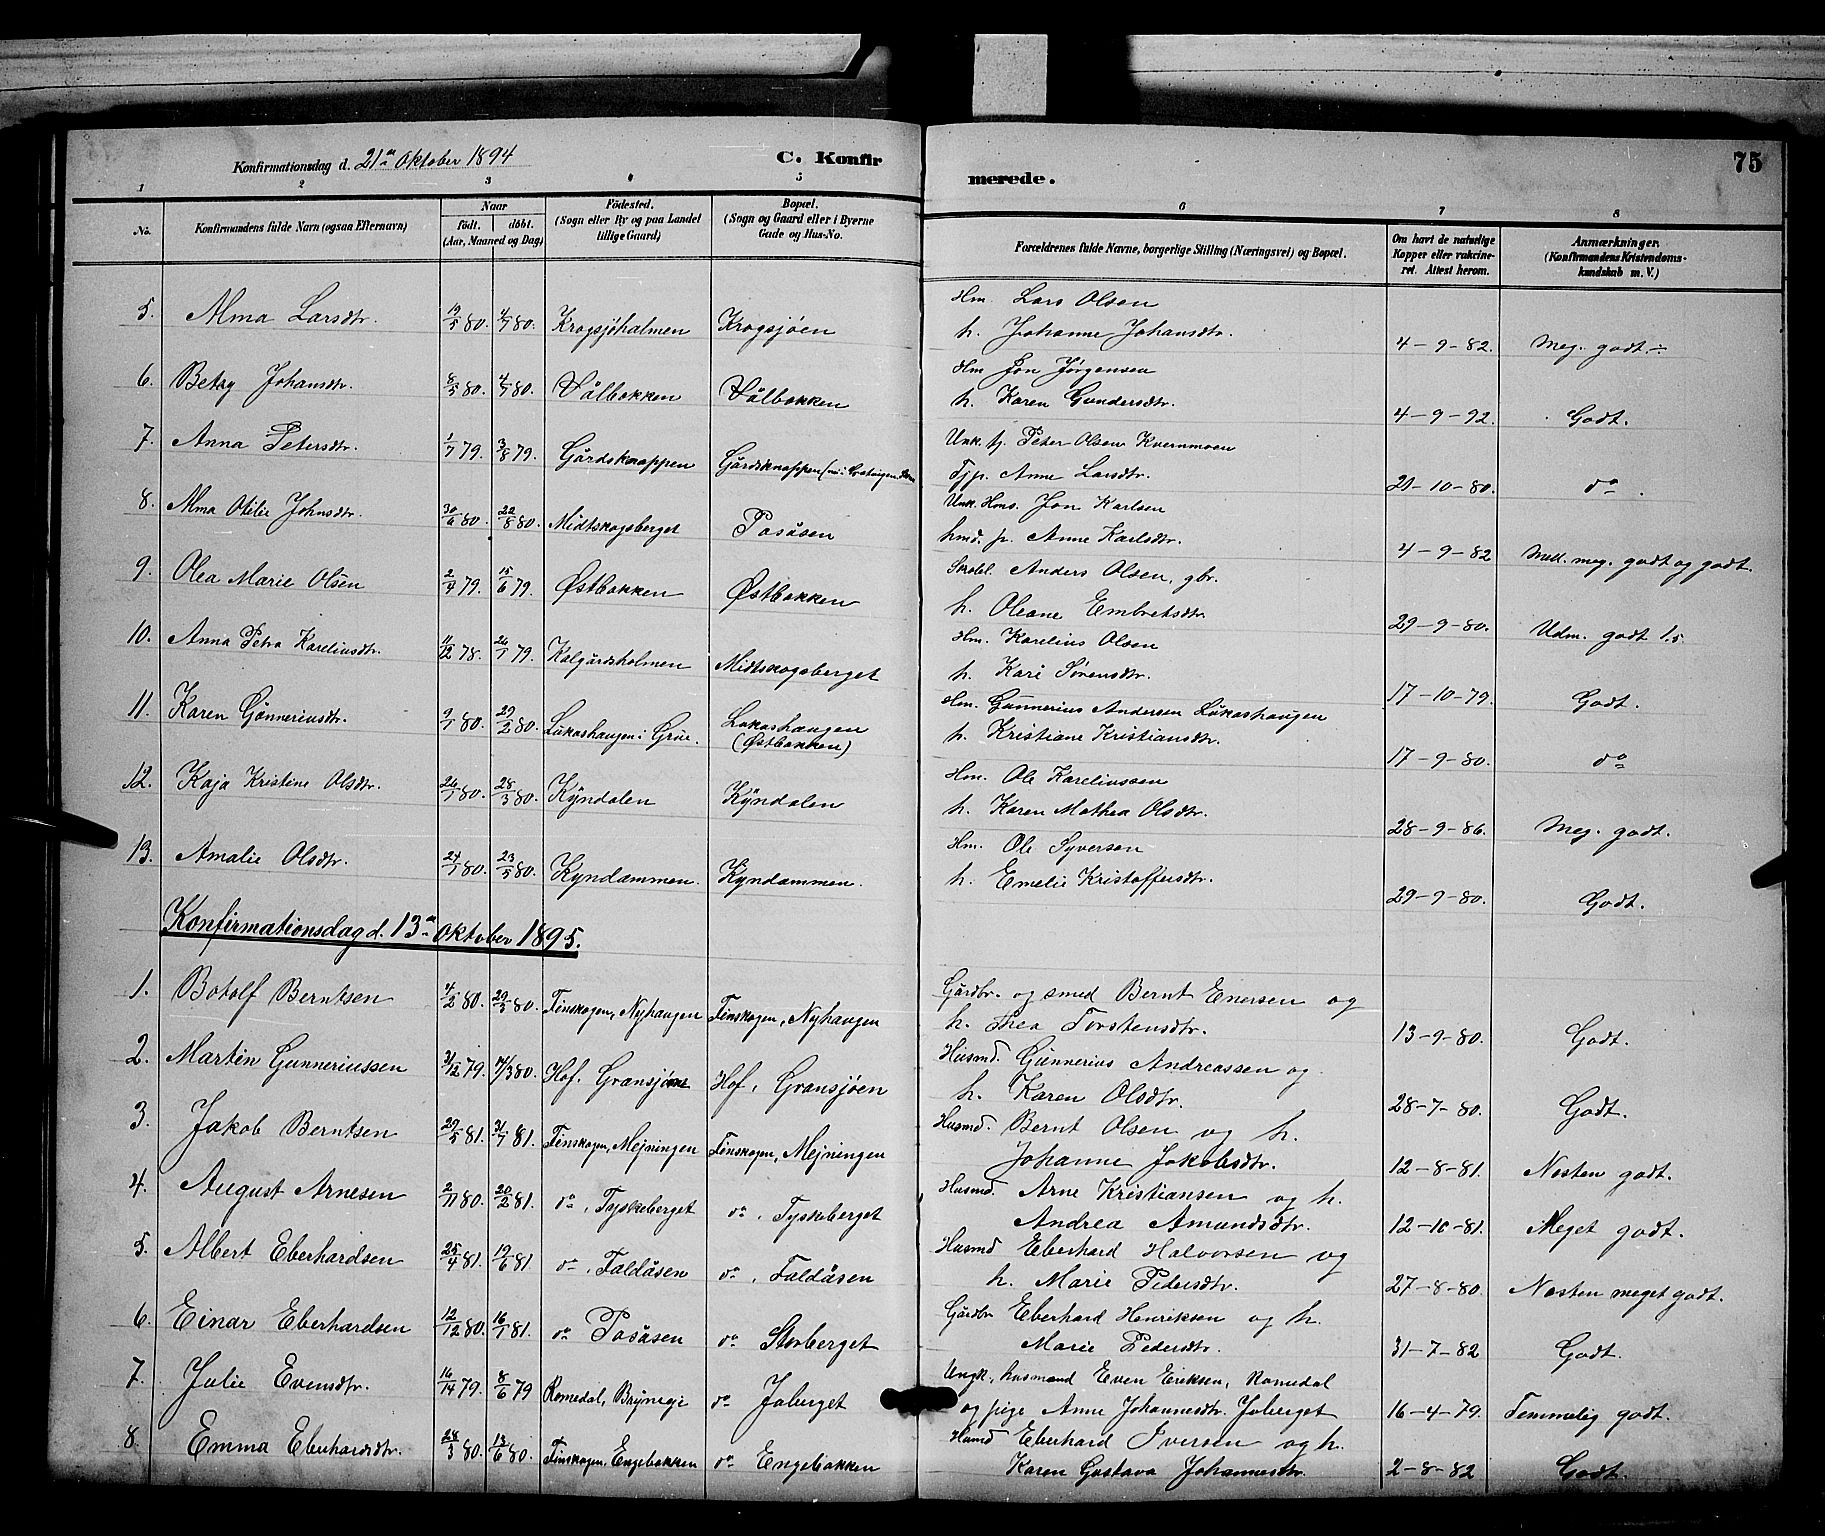 Konfirmationsdag d. 21de Oktober 1894
C. Konfir
merede.
75
1 2 3 4 5 6 7 8
No. Konfirmandens fulde Navn (ogsaa Efternavn) Naar født. døbt. (Aar, Maaned og Dag) Fødested. (Sogn eller By og paa Landet tillige Gaard) Bopæl. (Sogn og Gaard eller i Byerne Gade og Hus-No. Forældrenes fulde Navne, borgerlige Stilling (Næringsvei) og Bopæl. Om havt de naturlige Kopper eller vakcineret. Attest herom. Anmærkninger. (Konfirmandens Kristendomskundskab m. V.)
5. Alma Larsdtr. 19/5 80. 4/7 80. Krogsjøholmen Krogsjøen Hm. Lars Olsen
h. Johanne Johansdtr. 4-9-82. Meg. godt ÷
6. Betzy Johansdtr. 8/5 80. 4/7 80. Vålbakken Vålbakken Hm Jon Jørgensen
h. Karen Gundersdtr. 4-9-92. Godt.
7. Anna Petersdtr. 1/7 79. 3/8 79. Gårdsknappen Gårdsknappen Unk. tj. Peter Olsen Kvernmoen
Tjp. Anne Larsdtr. 20-10-80. do.
8. Alma Otilie Johnsdtr. 30/6 80. 22/8 80. Midtskogsberget Posåsen Unk. Hms. Jon Karlsen
hmd. p. Anne Karlsdtr. 4-9-82 Mell. meg. godt og godt.
9. Olea Marie Olsen 2/4 79. 15/6 79. Østbakken Østbakken Skobl. Anders Olsen, gbr.
h. Oleane Embretsdtr. 29-9-80. Udm. godt 1.5.
10. Anna Petra Kareliusdtr. 11/12 78. 26/1 79. Kalgårdsholmen Midtskogsberget Hm. Karelius Olsen
h. Kari Sørensdtr. 17-10-79. Godt.
11. Karen Gønneriusdtr. 9/1 80. 29/2 80. Lukashaugen i Grue. Lukashaugen (Østbakken) Hm. Gunnerius Andersen Lukashaugen
h. Kristiane Kristiansdtr. 17-9-80. do
12. Kaja Kristine Olsdtr. 26/1 80. 28/3 80. Kyndalen Kyndalen Hm. Ole Kareliussen
h. Karen Mathea Olsdtr. 28-9-86. Meg. godt.
13. Amalie Olsdtr. 24/1 80. 23/5 80. Kyndammen. Kyndammen. Hm. Ole Syversen
h. Emelie Kristoffersdtr. 29-9-80. Godt.
Konfirmationsdag d. 13de Oktober 1895.
1. Botolf Berntsen 4/2 80. 29/3 80. Finskogen, Nyhaugen Finskogen, Nyhaugen Gårdbr. og smed Bernt Enersen og
h. Thea Torstensdtr. 13-9-80. Godt.
2. Martin Gunneriussen 31/12 79. 14/3 80. Hof, Gransjøen Hof, Gransjøen Husmd. Gunnerius Andreassen og
h. Karen Olsdtr. 28-7-80. Godt.
3. Jakob Berntsen 29/5 81. 31/7 81. Finskogen, Mejningen Finskogen, Mejningen Husmd. Bernt Olsen og h.
Johanne Jakobsdtr. 12-8-81. Nesten godt.
4. August Arnesen 2/11 80. 20/2 81. do, Tyskeberget do, Tyskeberget Husmd. Arne Kristiansen og h.
Andrea Amundsdtr. 12-10-81. Meget godt.
5. Albert Eberhardsen 25/4 81. 19/6 81. do, Faldåsen do, Faldåsen Husmd Eberhard Halvorsen og
h. Marie Pedersdtr. 27-8-80. Nesten meget godt.
6. Einar Eberhardsen 12/12 80. 16/1 81. do Posåsen do Storberget Gårdbr Eberhard Henriksen og h.
Marie Pedersdtr. 31-7-82 Godt.
7. Julie Evensdtr. 16/14 79. 8/6 79 Romedal, Brynegi do Joberget Ungk., husmand Even Eriksen, Romedal
og pige Anne Johannesdtr. Joberget 16-4-79. Temmelig godt.
8. Emma Eberhardsdtr. 28/3 80. 13/6 80. Finskogen, Engebakken do Engebakken Husmd Eberhard Iversen og h.
Karen Gustava Johannesdtr. 2-8-82 Godt.